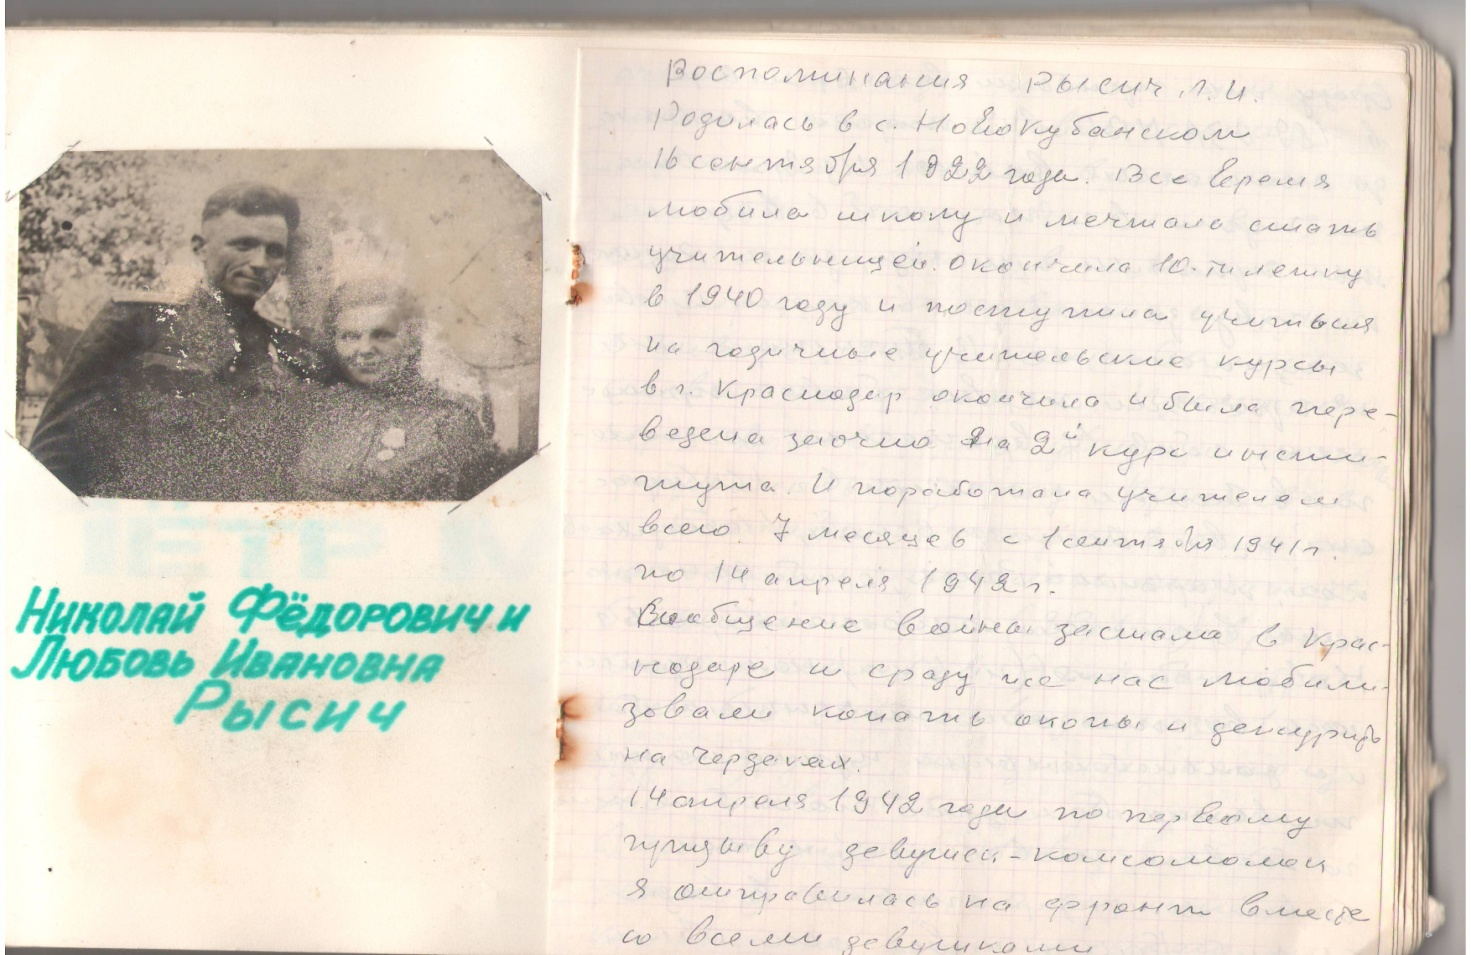 Николай Фёдорович и
Любовь Ивановна
Рысич
Воспоминания Рысич Л.И.
Родилась в с. Новокубанском
16 сентября 1922 года. Все время
любила школу и мечтала стать
учительницей. окончила 10-тилетку
в 1940 году и поступила учиться
на годичные учительские курсы
в г. Краснодар окончила и была пере-
ведена заочно на 2й курс инсти-
тута. И поработала учителем
всего 7 месяцев с 1 сентября 1941 г.
по 14 апреля 1942 г.
Сообщение войны застала в Крас-
нодаре и сразу же нас мобили-
зовали копать окопы и дежурить
на чердаках.
14 апреля 1942 года по первому
призыву девушек-комсомолок
я отправилась на фронт вместе
со всеми девушками